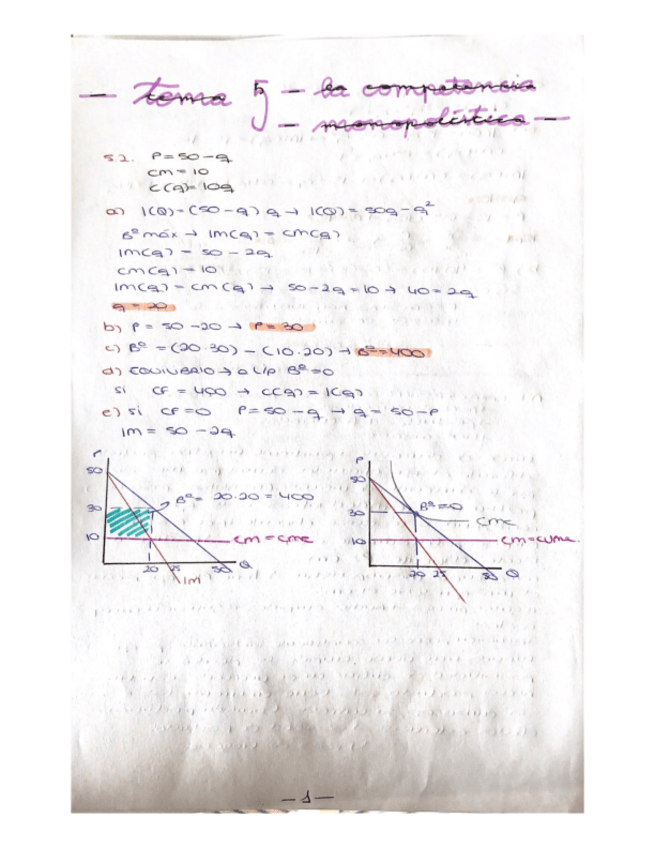 — tema 5 — la competencia
— monopolística —
5.2. P = 50 - q
CM = 10
C(q) = 10q
a) I(Q) = (50 - q) q → I(Q) = 50q - q²
Bº máx → IM(q) = CM(q)
IM(q) = 50 - 2q
CM(q) = 10
IM(q) = CM(q) → 50 - 2q = 10 → 40 = 2q
q = 20
b) P = 50 - 20 → P = 30
c) Bº = (20·30) - (10·20) → Bº = 400
d) EQUILIBRIO → a L/P Bº = 0
Si CF = 400 → C(q) = I(q)
e) Si CF = 0 P = 50 - q → q = 50 - P
IM = 50 - 2q
P
50
30
10
Bº = 20·20 = 400
CM = CMe
20 25 50 Q
IM
P
50
30
10
Bº = 0
CMe
CM = CVMe
20 25 50 Q
— 1 —